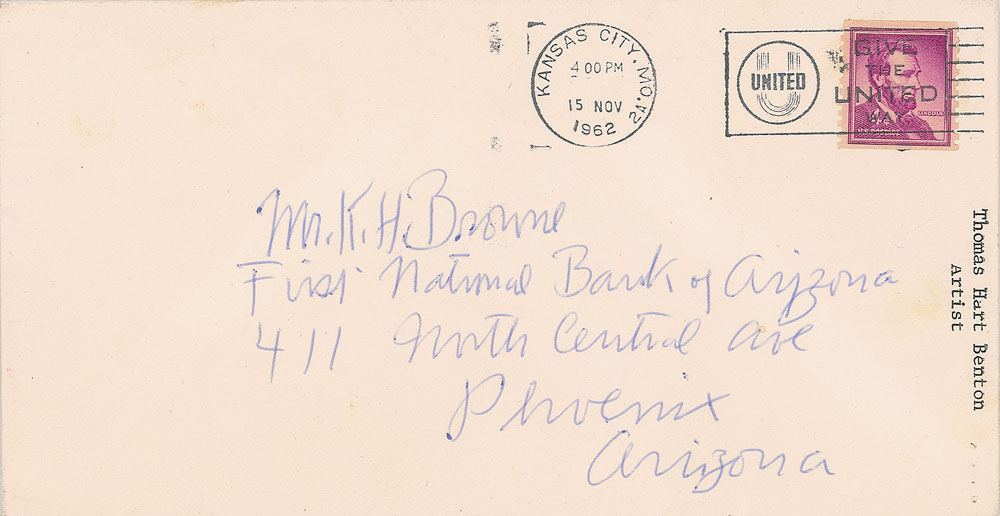 KANSAS CITY, MO. 2A
4 00 PM
15 NOV
1962
UNITED
GIVE
THE
UNITED
WAY
LINCOLN
4¢
U.S. POSTAGE
Mr. K. H. Browne
First National Bank of Arizona
411 North Central Ave
Phoenix
Arizona
Thomas Hart Benton
Artist